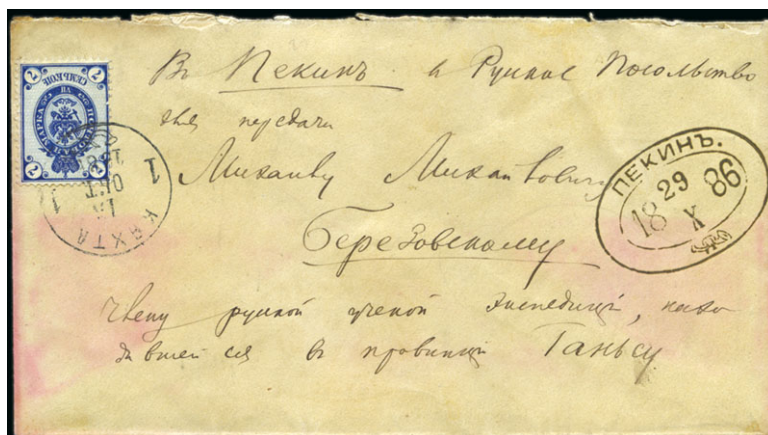 Въ Пекинъ въ Русское Посольство
для передачи
Михаилу Михайловичу
Березовскому
Члену русской ученой экспедиціи, нахо
дившейся въ провинціи Ганьсу
ПЕКИНЪ.
29
18 86
X
КЯХТА
1 1
ОКТ
ПОЧТОВАЯ МАРКА
2 2 2 2